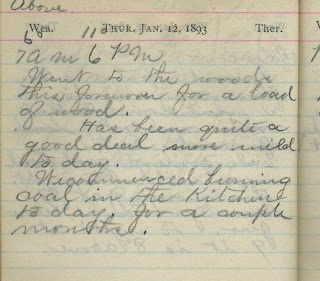 Above
6° 11°
Wea. THUR. JAN. 12, 1893 Ther.
7 a m 6 P M
Went to the woods
this forenoon for a load
of wood.
Has been quite a
good deal more mild
to day.
We commenced burning
coal in the Kitchen
to day. for a couple
months.